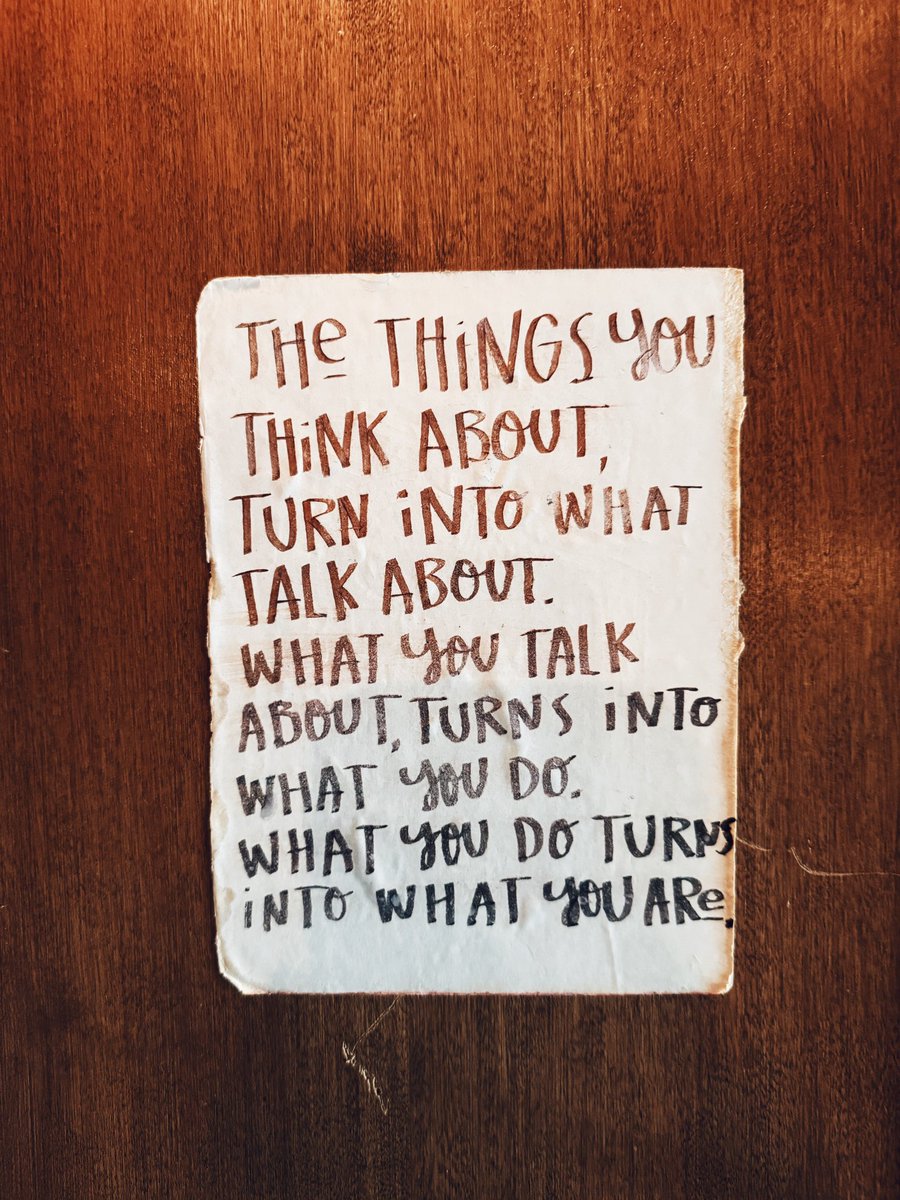 THe THiNGS YOU
THiNK ABOUT,
TURN iNTO WHAT
TALK ABOUT.
WHAT YOU TALK
ABOUT, TURNS iNTO
WHAT YOU DO.
WHAT YOU DO TURNS
iNTO WHAT YOU ARe.